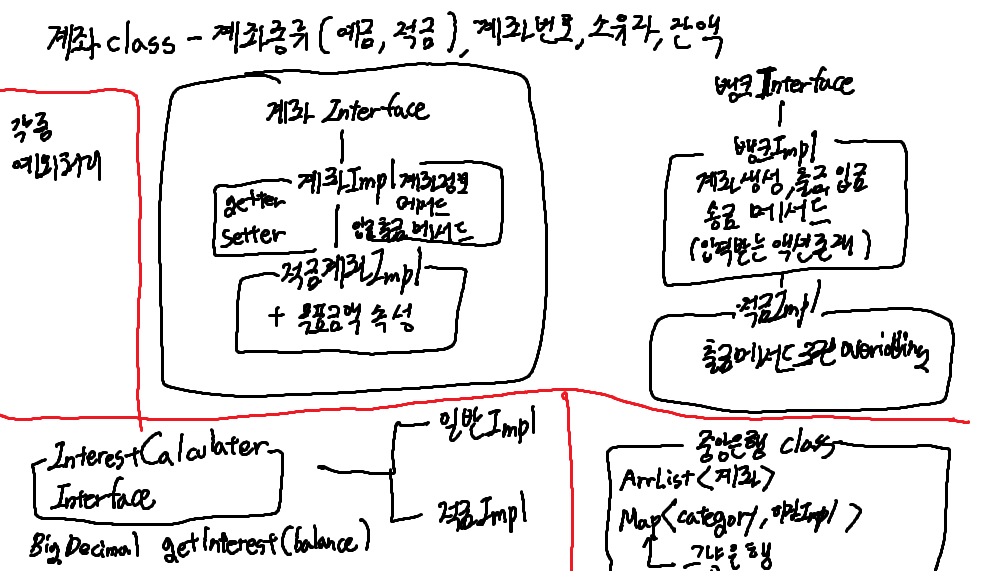 계좌 class - 계좌종류 (예금, 적금), 계좌번호, 소유자, 잔액
각종
예외처리
계좌 Interface
계좌Impl
getter
setter
계좌정보
메서드
입출금 메서드
적금계좌Impl
+ 목표금액 속성
뱅크 Interface
뱅크Impl
계좌생성, 출금, 입금
송금 메서드
(입력받는 액션존재)
적금Impl
출금메서드 조건 overidding
InterestCalculater
Interface
BigDecimal getInterest(balance)
일반Impl
적금Impl
중앙은행 class
ArrList<계좌>
Map<category, Impl>
그냥은행